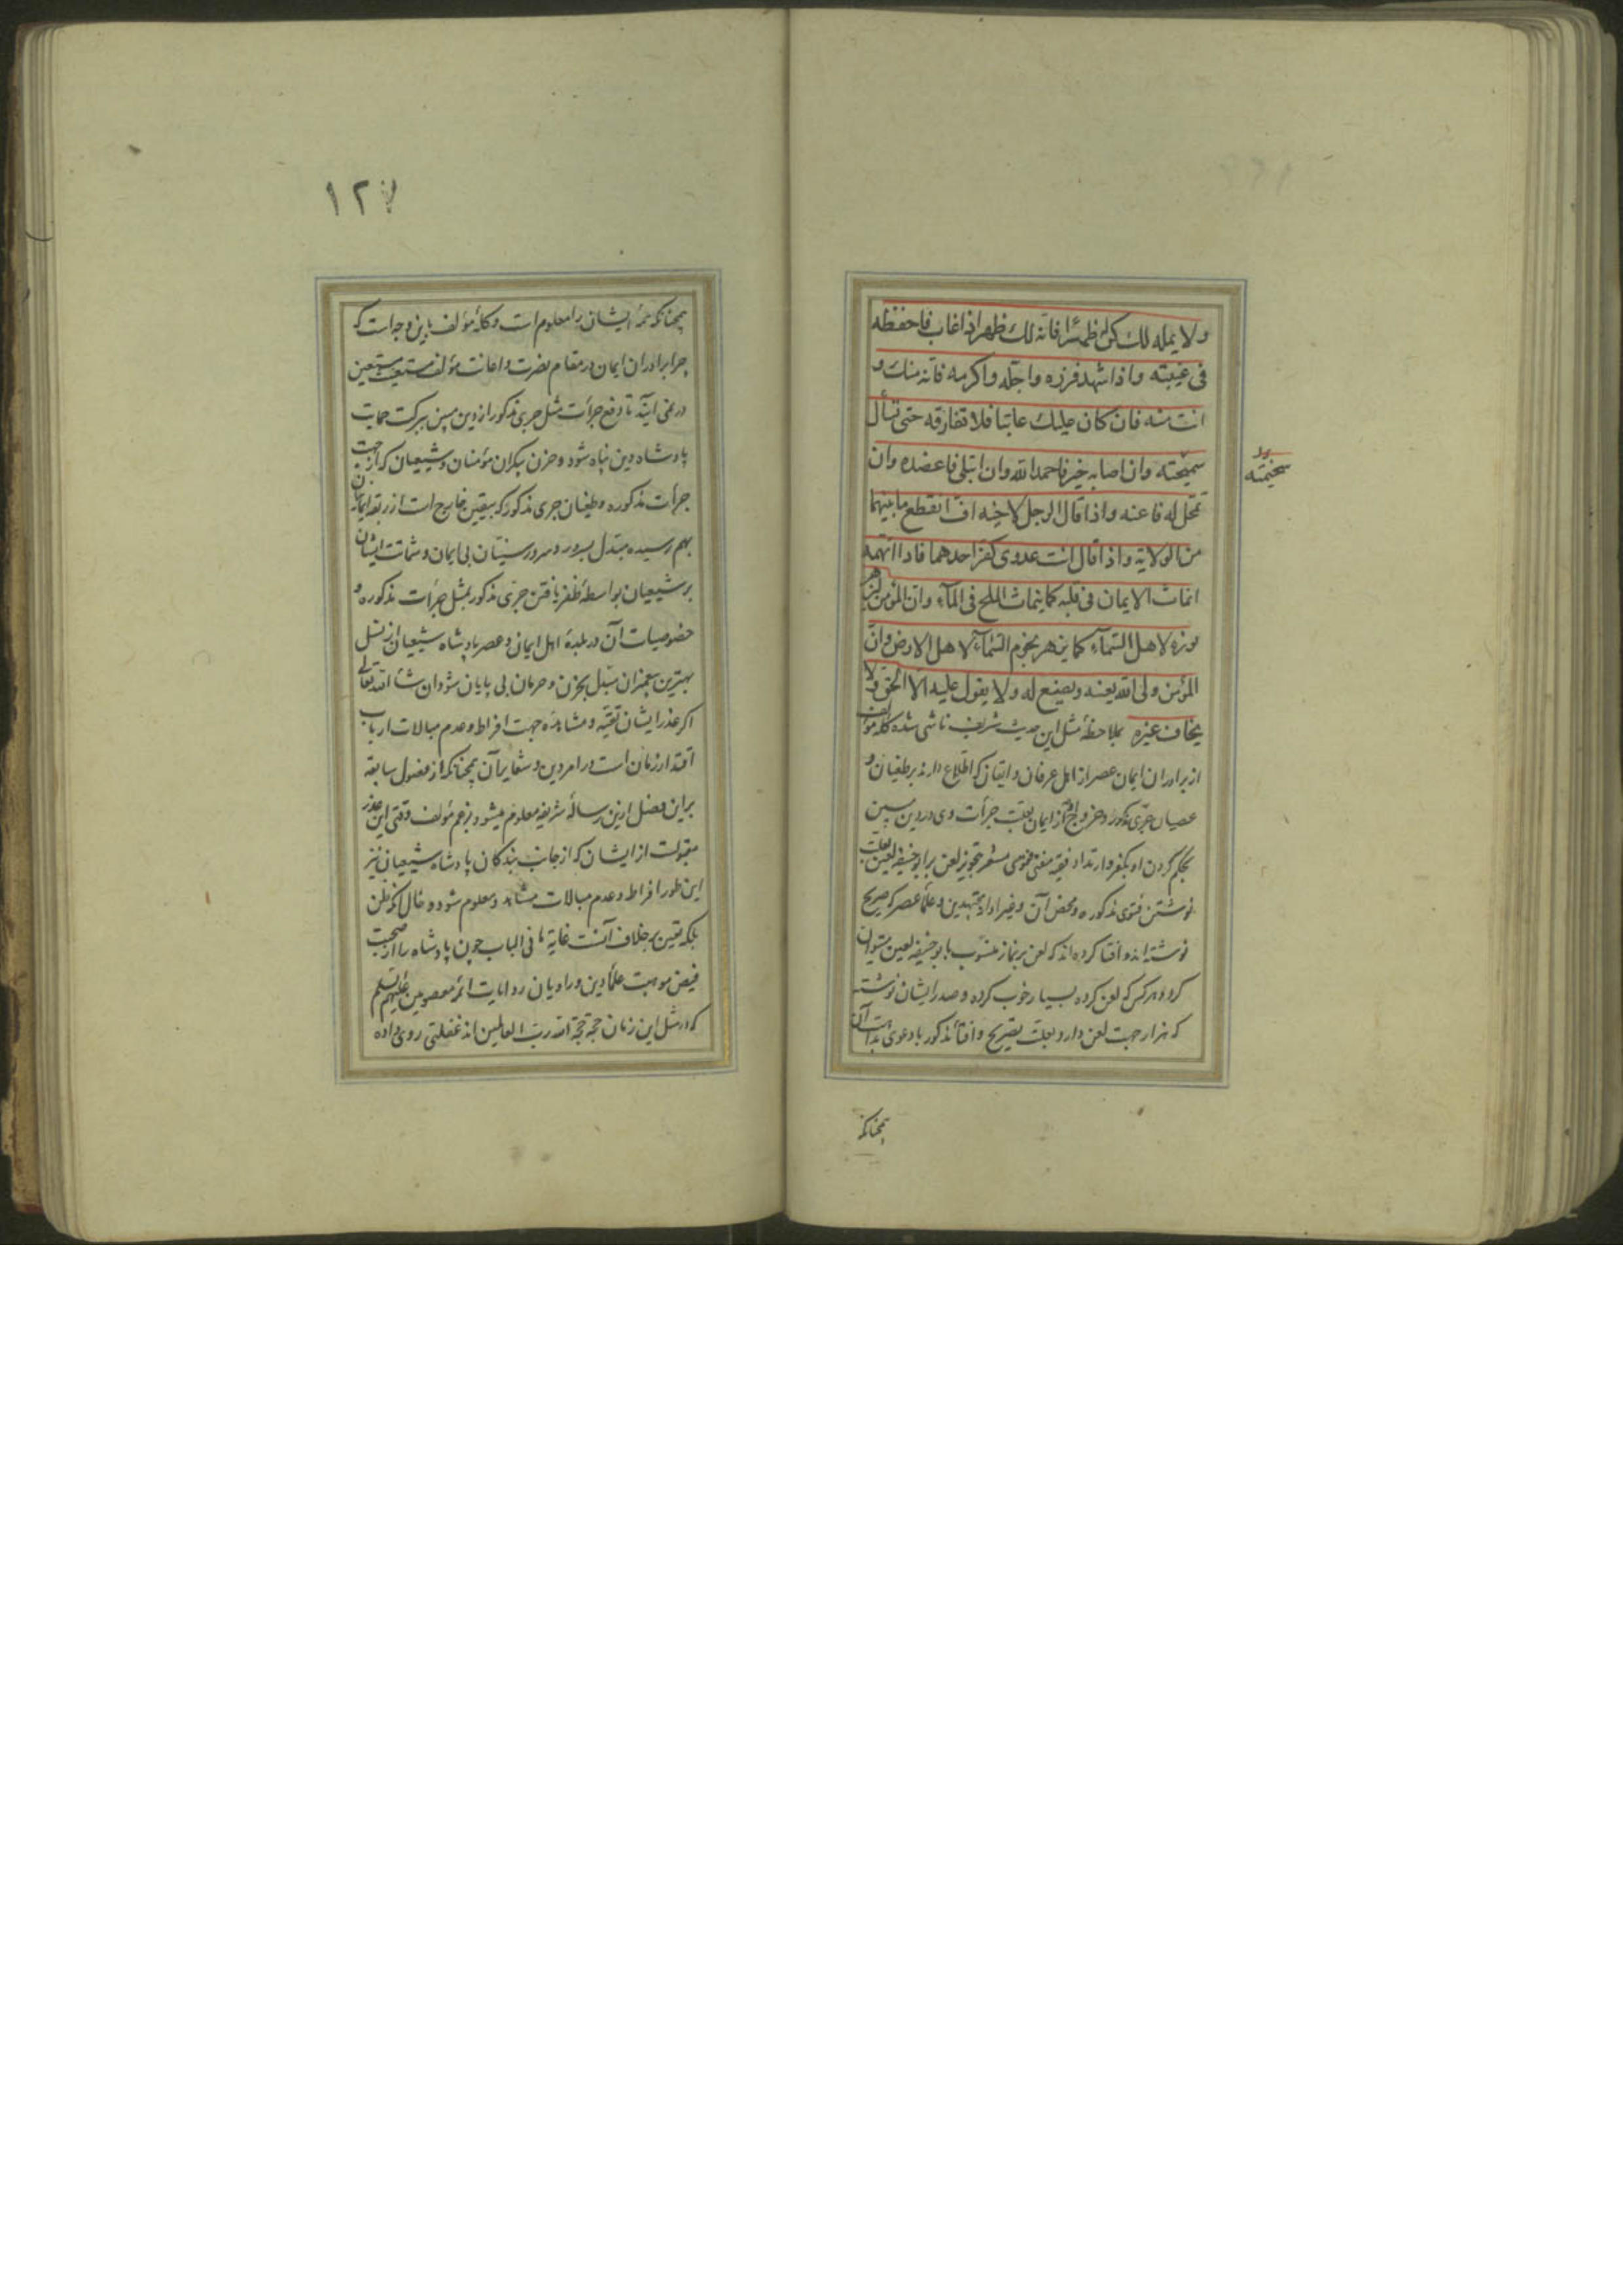 ولا یمله لك کن له ظهرا فانه لك ظهر اذا غاب فاحفظه
فی غیبته واذا شهد فزره واجلّه واکرمه فانه منك و
انت منه فان کان علیك عاتبا فلا تفارقه حتی تسأل
سمیحته وان اصابه خیر فاحمد الله وان ابتلی فاعضده وان
تمحّل له فاعنه واذا قال الرجل لاخیه افّ انقطع ما بینهما
من الولایة واذا قال انت عدوی کفر احدهما فاذا اتهمه
انماث الایمان فی قلبه کما ینماث الملح فی المآء وانّ المؤمن لیزهر
نوره لاهل السّمآء کما یزهر نجوم السّمآء لاهل الارض وانّ
المؤمن ولی الله یعینه ویصنع له ولا یقول علیه الا الحق ولا
یخاف غیره بملاحظهٔ مثل این حدیث شریف ناشی شده کلهٔ مؤلف
از برادران ایمان عصر از اهل عرفان و ایقان که اطلاع دارند بر طغیان و
عصیان جری مذکور و خروج از ایمان بعلت جرأت وی در دین مبین
بحکم کردن او بکفر و ارتداد فقیه مفتی فتوی مشعر بتجویز لعن بر ابو حنیفه لعین بعلت
نوشتن فتوی مذکوره و محض آن و غیر او از مجتهدین و علمآ عصر که صریح
نوشته اند و افتا کرده اند که لعن بر نماز منسوب بابو حنیفه لعین میتوان
کرد و هرکس که لعن کرده بسیار خوب کرده و صدر ایشان نوشته
که هزار جهت لعن دارد بعلت تصریح و افتآ مذکور با دعوی بداهت آن
سخیمته
همچنانکه
١٢٧
همچنانکه همهٔ ایشان را معلوم است و کلهٔ مؤلف باین وجه است که
چرا برادران ایمان در مقام نصرت و اعانت مؤلف مستغیث مستعین
در نمی آیند تا دفع جرأت مثل جری مذکور از دین مبین ببرکت حمایت
پادشاه دین پناه شود و حزن بیکران مؤمنان و شیعیان که از جهت
جرأت مذکوره و طغیان جری مذکور که بیقین خارج است از ربقهٔ ایمان
بهم رسیده مبتدل بسرور و سرور سنیّان بی ایمان و شماتت ایشان
بر شیعیان بواسطهٔ ظفر یافتن جری مذکور بمثل جرأت مذکوره و
خصوصیات آن در بلدهٔ اهل ایمان و عصر پادشاه شیعیان از نسل
بهترین پیغمبران مبتدل بحزن و حرمان بی پایان شود ان شآ الله تعالی
اکر عذر ایشان تقیّه و مشاهده جهت افراط و عدم مبالات ارباب
اقتدار زمان است در امر دین و شعایر آن همچنانکه از فصول سابقه
بر این فصل ازین رسالهٔ شریفه معلوم میشود بزعم مؤلف وقتی این عذر
مقبولست از ایشان که از جانب بندکان پادشاه شیعیان نیز
این طور افراط و عدم مبالات مشاهد و معلوم شود و حال آنکه ظن
بلکه یقین بر خلاف آنست غایة ما فی الباب چون پادشاه را از صحبت
فیض موهبت علمآ دین و راویان روایات ائمهٔ معصومین علیهم السلم
که در مثل این زمان حجة حجة الله رب العالمین اند غفلتی روی داده